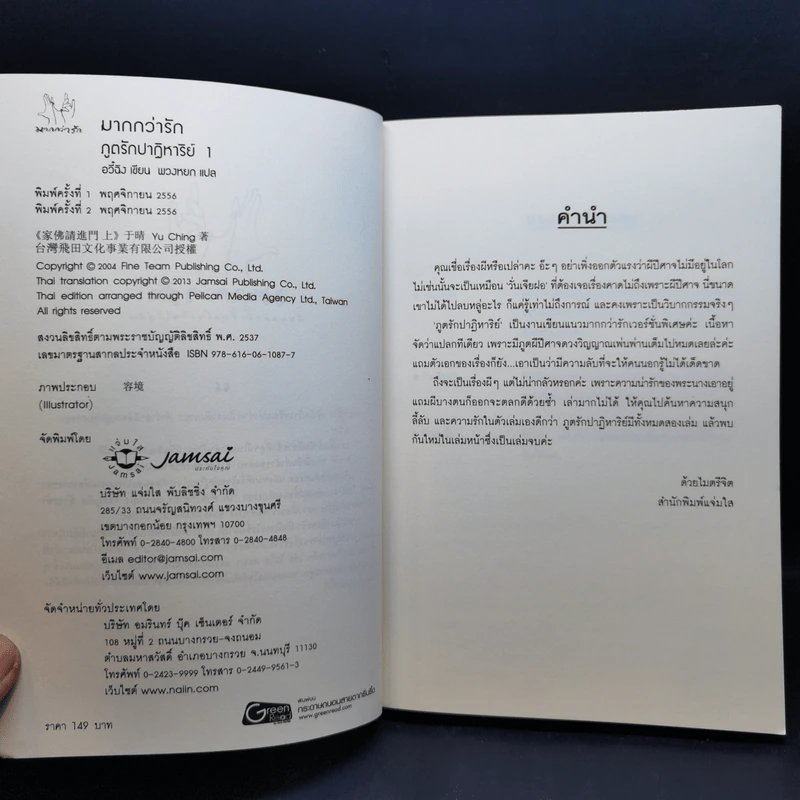 มากกว่ารัก
มากกว่ารัก
ภูตรักปาฏิหาริย์ 1
อวี๋ฉิง เขียน พวงหยก แปล
พิมพ์ครั้งที่ 1 พฤศจิกายน 2556
พิมพ์ครั้งที่ 2 พฤศจิกายน 2556
《家佛請進門 上》于晴 Yu Ching 著
台灣飛田文化事業有限公司授權
Copyright © 2004 Fine Team Publishing Co., Ltd.
Thai translation copyright © 2013 Jamsai Publishing Co., Ltd.
Thai edition arranged through Pelican Media Agency Ltd., Taiwan
All rights reserved
สงวนลิขสิทธิ์ตามพระราชบัญญัติลิขสิทธิ์ พ.ศ. 2537
เลขมาตรฐานสากลประจำหนังสือ ISBN 978-616-06-1087-7
ภาพประกอบ 容境
(Illustrator)
จัดพิมพ์โดย
แจ่มใส
Jamsai
Jamsai
บริษัท แจ่มใส พับลิชชิ่ง จำกัด
285/33 ถนนจรัญสนิทวงศ์ แขวงบางขุนศรี
เขตบางกอกน้อย กรุงเทพฯ 10700
โทรศัพท์ 0-2840-4800 โทรสาร 0-2840-4848
อีเมล editor@jamsai.com
เว็บไซต์ www.jamsai.com
จัดจำหน่ายทั่วประเทศโดย
บริษัท อมรินทร์ บุ๊ค เซ็นเตอร์ จำกัด
108 หมู่ที่ 2 ถนนบางกรวย-จงถนอม
ตำบลมหาสวัสดิ์ อำเภอบางกรวย จ.นนทบุรี 11130
โทรศัพท์ 0-2423-9999 โทรสาร 0-2449-9561-3
เว็บไซต์ www.naiin.com
Green
Read
พิมพ์บน
กระดาษถนอมสายตากรีนรี้ด
www.greenread.com
ราคา 149 บาท
คำนำ
คุณเชื่อเรื่องผีหรือเปล่าคะ อ๊ะๆ อย่าเพิ่งออกตัวแรงว่าผีปีศาจไม่มีอยู่ในโลก
ไม่เช่นนั้นจะเป็นเหมือน 'วั่นเจียฝอ' ที่ต้องเจอเรื่องคาดไม่ถึงเพราะผีปีศาจ นี่ขนาด
เขาไม่ได้ไปลบหลู่อะไร ก็แค่รู้เท่าไม่ถึงการณ์ และคงเพราะเป็นวิบากกรรมจริงๆ
'ภูตรักปาฏิหาริย์' เป็นงานเขียนแนวมากกว่ารักเวอร์ชั่นพิเศษค่ะ เนื้อหา
จัดว่าแปลกทีเดียว เพราะมีภูตผีปีศาจดวงวิญญาณเพ่นพ่านเต็มไปหมดเลยล่ะค่ะ
แถมตัวเอกของเรื่องก็ยัง...เอาเป็นว่ามีความลับที่จะให้คนนอกรู้ไม่ได้เด็ดขาด
ถึงจะเป็นเรื่องผีๆ แต่ไม่น่ากลัวหรอกค่ะ เพราะความน่ารักของพระนางเอาอยู่
แถมผีบางตนก็ออกจะตลกดีด้วยซ้ำ เล่ามากไม่ได้ ให้คุณไปค้นหาความสนุก
ลี้ลับ และความรักในตัวเล่มเองดีกว่า ภูตรักปาฏิหาริย์มีทั้งหมดสองเล่ม แล้วพบ
กันใหม่ในเล่มหน้าซึ่งเป็นเล่มจบค่ะ
ด้วยไมตรีจิต
สำนักพิมพ์แจ่มใส